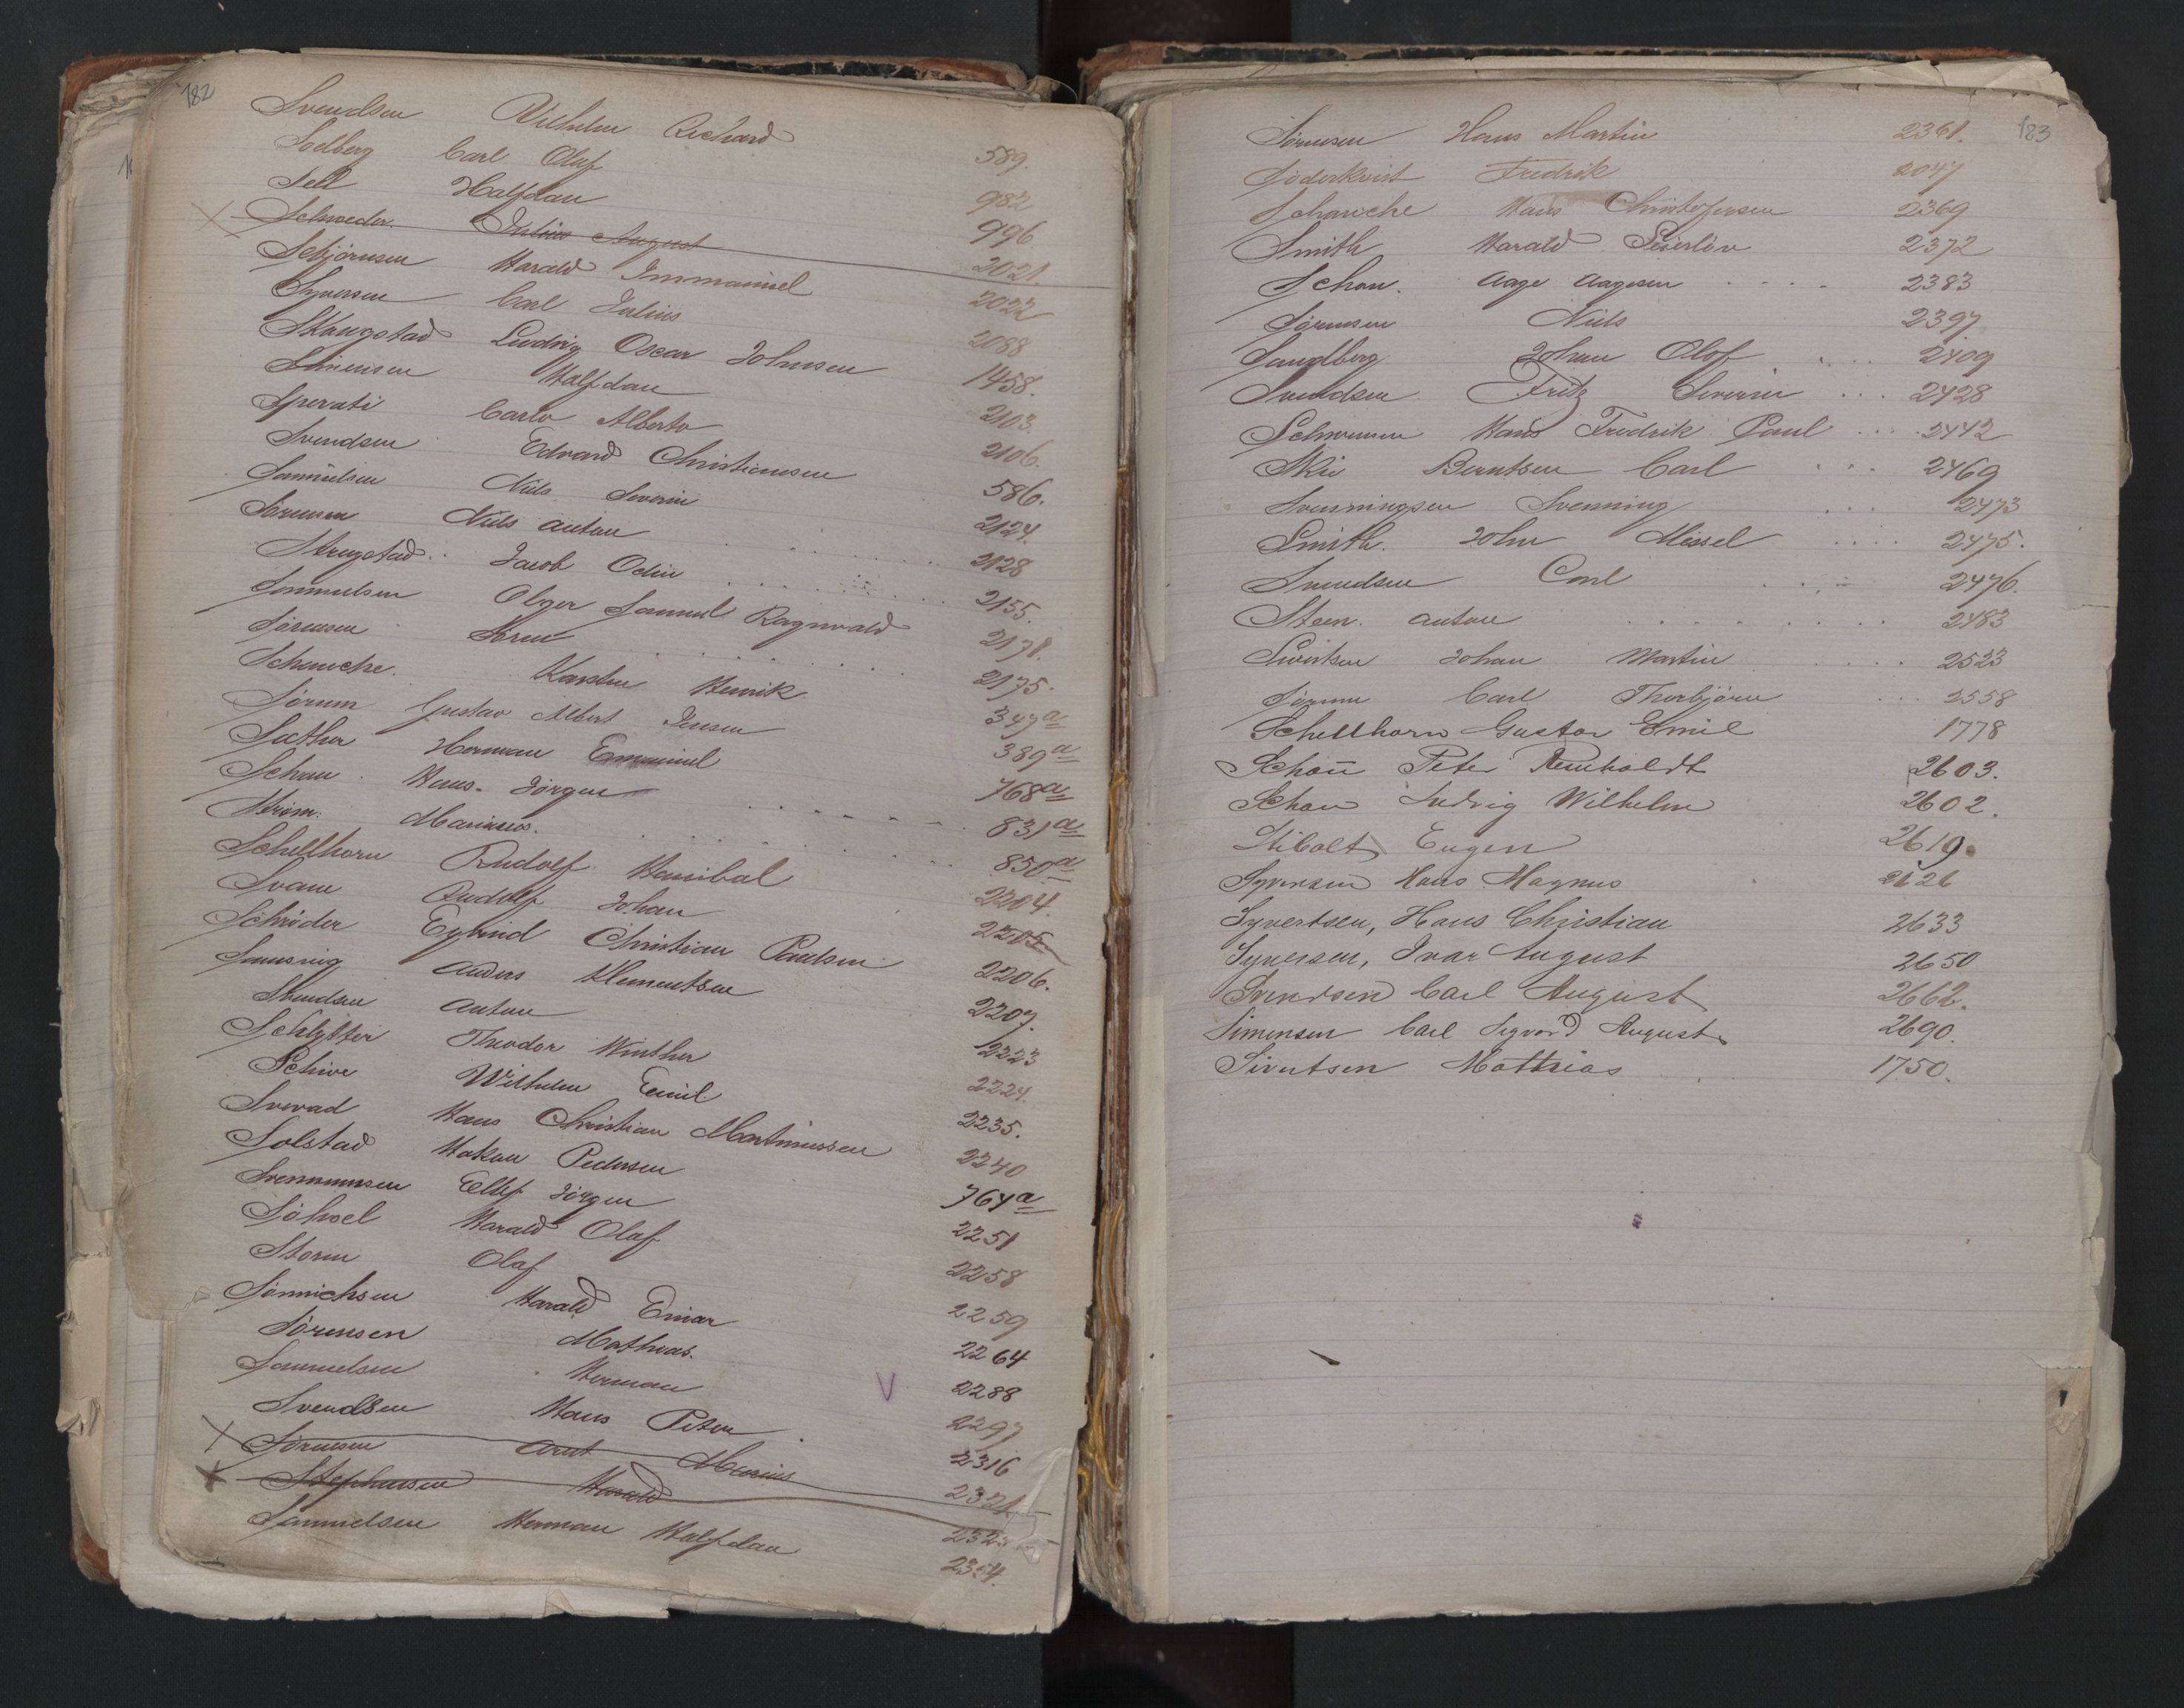 182
Svendsen Vilhelm Richard 589.
Solberg Carl Olaf 982
Sell Halfdan 996
Schrøder. Julius August 2021.
Sebjörnsen Harald Immanuel 2022
Syversen Carl Julius 2088
Skaugstad Ludvig Oscar Johnsen 1458.
Simensen Halfdan 2103.
Sperati Carlo Alberto 2106.
Svendsen Edvard Christiansen 586.
Samuelsen Niels Severin 2124.
Sörensen Niels Anton 2128
Strugstad. Jacob Odin 2155.
Sammuelsen Olger Samuel Ragnvald 2171.
Sörensen Sören 2175.
Schanche. Karsten Henrik 347a
Sörum Gustav Albert Jensen 389a
Sæther Herman Emanuel 768a
Schau Hans Jörgen 831a
Strøm. Marinus. 850a
Schellhorn Rudolf Hanibal 2204.
Svane Rudolf Johan 2205
Schröder Eyvind Christian Paulsen 2206.
Samsvig Anders Klementsen 2207.
Svendsen Anton 2223
Schlytter Theodor Winther 2224.
Schive Wilhelm Emil 2235.
Sverad Hans Christian Martinussen 2240
Solstad Hakon Pedersen 764a
Svennumsen Ellef Jörgen 2251
Söhoel Harald Olaf 2258
Storm Olaf 2259
Sönnichsen Harald Einar 2264
Sörensen Mathias. 2288
Samuelsen Herman V 2297
Svendsen Hans Peter 2316
Sörensen Arnt Marius
Stephansen Harald
Samuelsen Herman Halfdan 2354.
183
Sörensen Hans Martin 2361.
Söderkvist Fredrik 2047
Schanche Hans Christofersen 2369
Smith Harald Seierløv 2372
Schou. Aage Aagesen 2383
Sörensen Niels 2397
Sandberg Johan Olof 2409
Svendsen Fritz Severin 2428
Schwensen Hans Fredrik Paul 2442
Skii Berntsen Carl 2469
Svenningsen Svenning 2473
Smith. John Missel 2475.
Svendsen Carl 2476.
Steen. Anton 2483
Sivertsen Johan Martin 2523
Sörum Carl Thorbjörn 2558
Schellhorn Gustav Emil 1778
Schou Peter Reinholdt 2603.
Schou Ludvig Wilhelm 2602.
Stibolt Eugen 2619.
Syversen Hans Magnus 2626
Syvertsen, Hans Christian 2633
Syversen, Ivar August 2650
Svendsen Carl August 2662.
Simensen Carl Sigvard August 2690.
Sivertsen Mathias 1750.